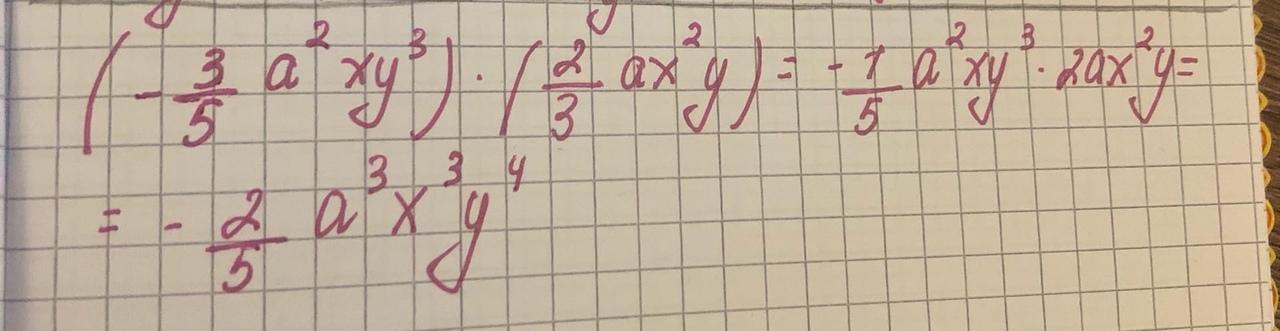 (-3/5 a²xy³) · (2/3 ax²y) = -1/5 a²xy³ · 2ax²y =
= - 2/5 a³x³y⁴